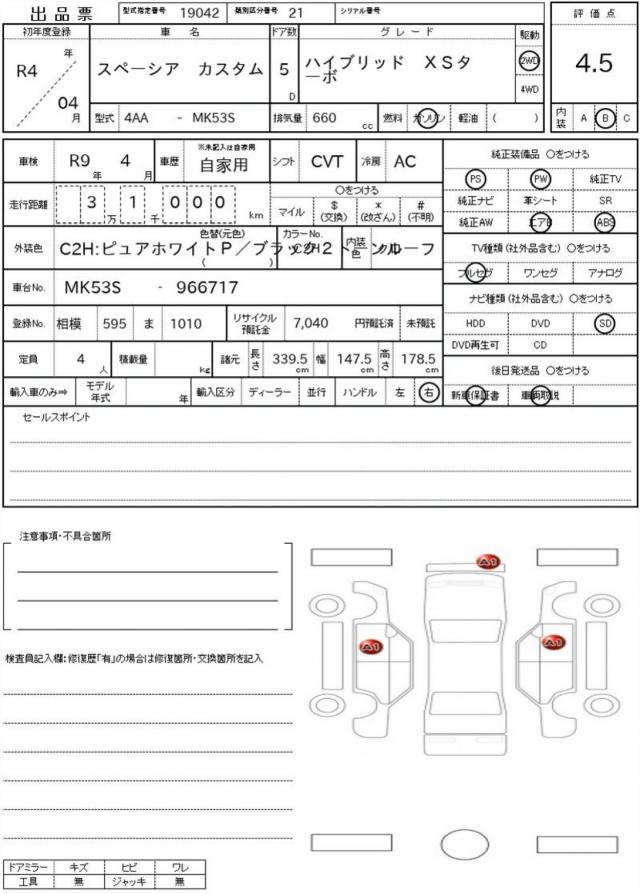 出品票 型式指定番号 19042 類別区分番号 21 シリアル番号
評価点
4.5
内装 A B C
初年度登録 車名 ドア数 グレード 駆動
R4 年 04 月
スペーシア カスタム
5 D
ハイブリッド XSタ
ーボ
2WD
4WD
型式 4AA - MK53S 排気量 660 cc 燃料 ガソリン 軽油 ( )
車検 R9 年 4 月 車歴 ※未記入は自家用 自家用 シフト CVT 冷房 AC
走行距離 3 万 1 千 0 0 0 km
○をつける
マイル $(交換) *(改ざん) #(不明)
外装色 色替(元色) カラーNo. 内装色
C2H:ピュアホワイトP/ブラック2トーンルーフ
( )
車台No. MK53S - 966717
登録No. 相模 595 ま 1010 リサイクル預託金 7,040 円預託済 未預託
定員 4 人 積載量 kg 諸元 長さ 339.5 cm 幅 147.5 cm 高さ 178.5 cm
輸入車のみ⇒ モデル年式 年 輸入区分 ディーラー 並行 ハンドル 左 右
純正装備品 ○をつける
PS PW 純正TV
純正ナビ 革シート SR
純正AW エアB ABS
TV種類(社外品含む) ○をつける
フルセグ ワンセグ アナログ
ナビ種類(社外品含む) ○をつける
HDD DVD SD
DVD再生可 CD
後日発送品 ○をつける
新車保証書 車両取説
セールスポイント
注意事項・不具合箇所
検査員記入欄:修復歴「有」の場合は修復箇所・交換箇所を記入
A1
A1
A1
ドアミラー キズ ヒビ ワレ
工具 無 ジャッキ 無